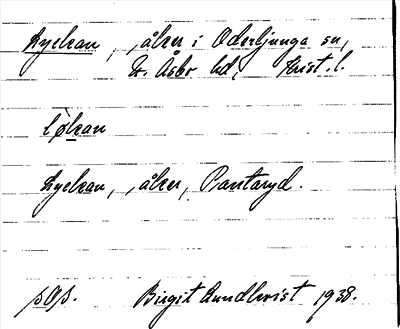 Lyckan, , åker i Oderljunga sn,
N. Åsbo hd, Krist. l.
lø̀kan
Lyckan, , åker, Pantaryd.
sOs. Birgit Lundkvist 1938.